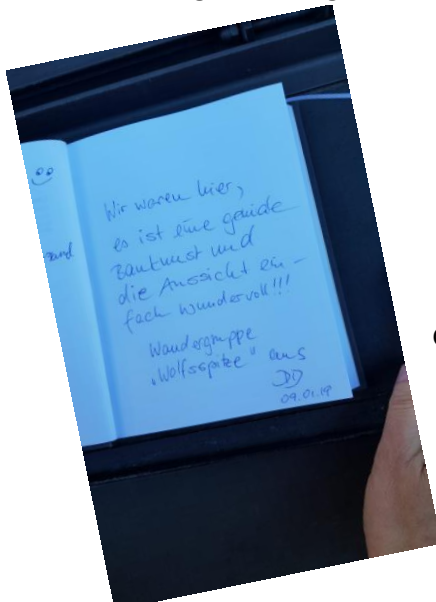 Wir waren hier,
es ist eine geniale
Baukunst und
die Aussicht ein-
fach wundervoll!!!
Wandergruppe
„Wolfsspitze" aus
DD
09.01.19